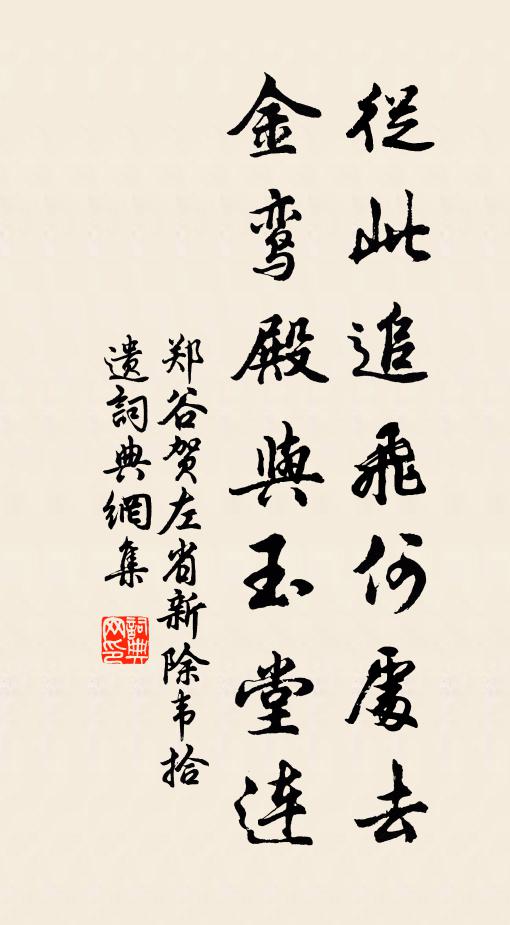 從此追飛何處去
金鸾殿與玉堂連
郑谷贺左省新除韦拾
遗詞典網集
詞典网印